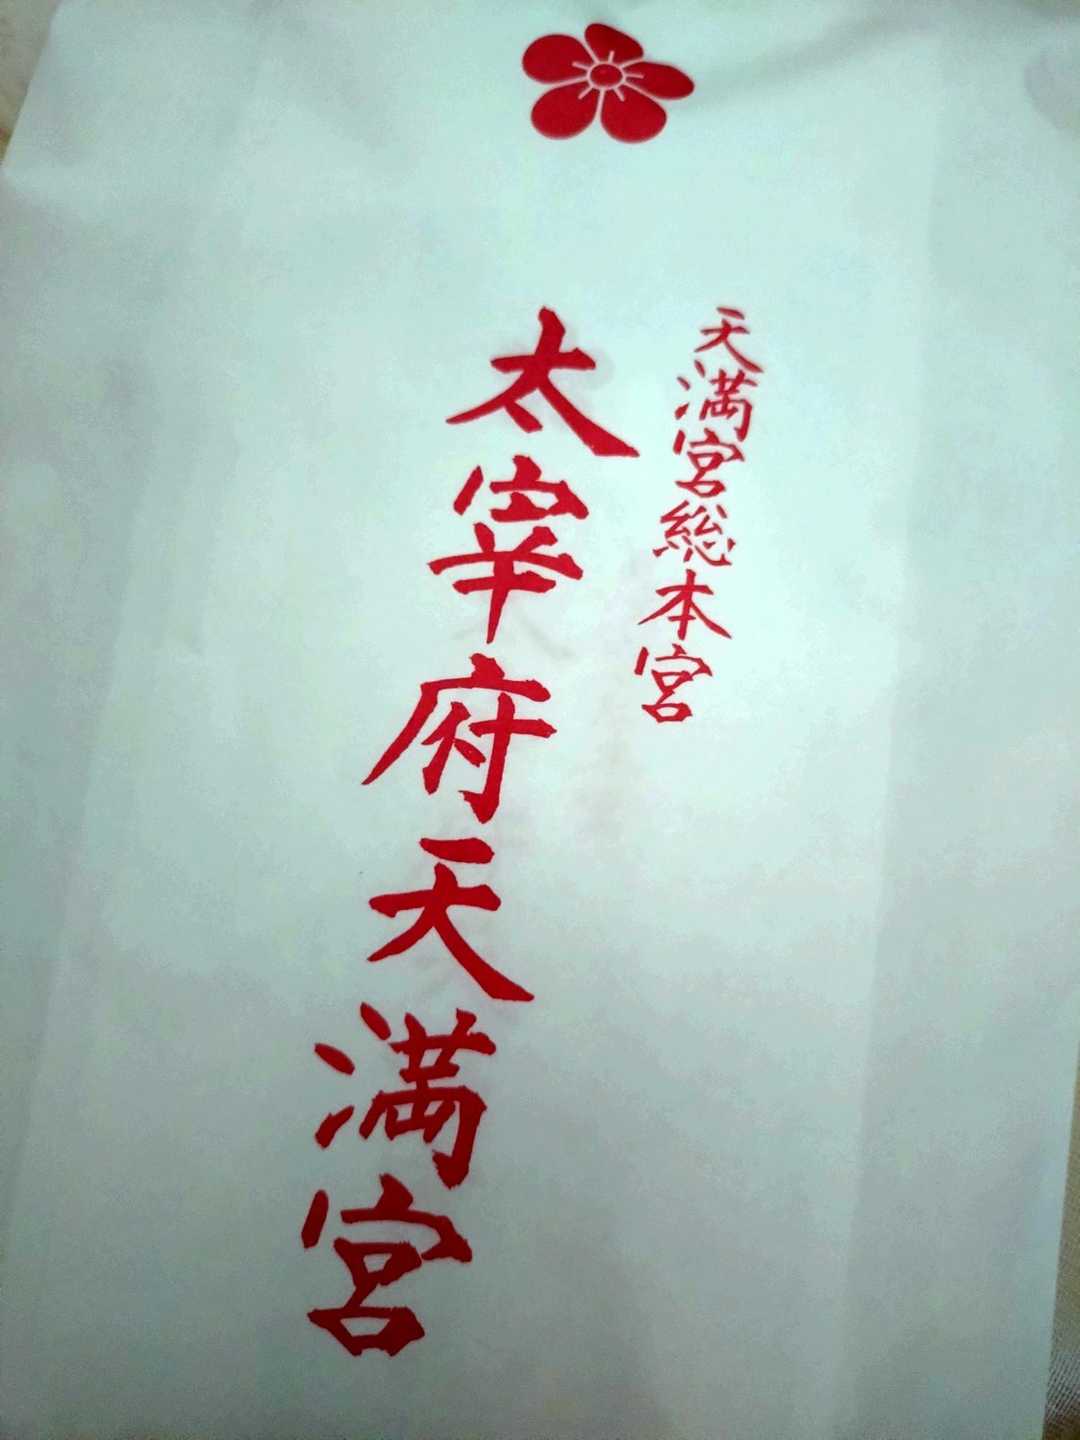 天満宮総本宮
太宰府天満宮